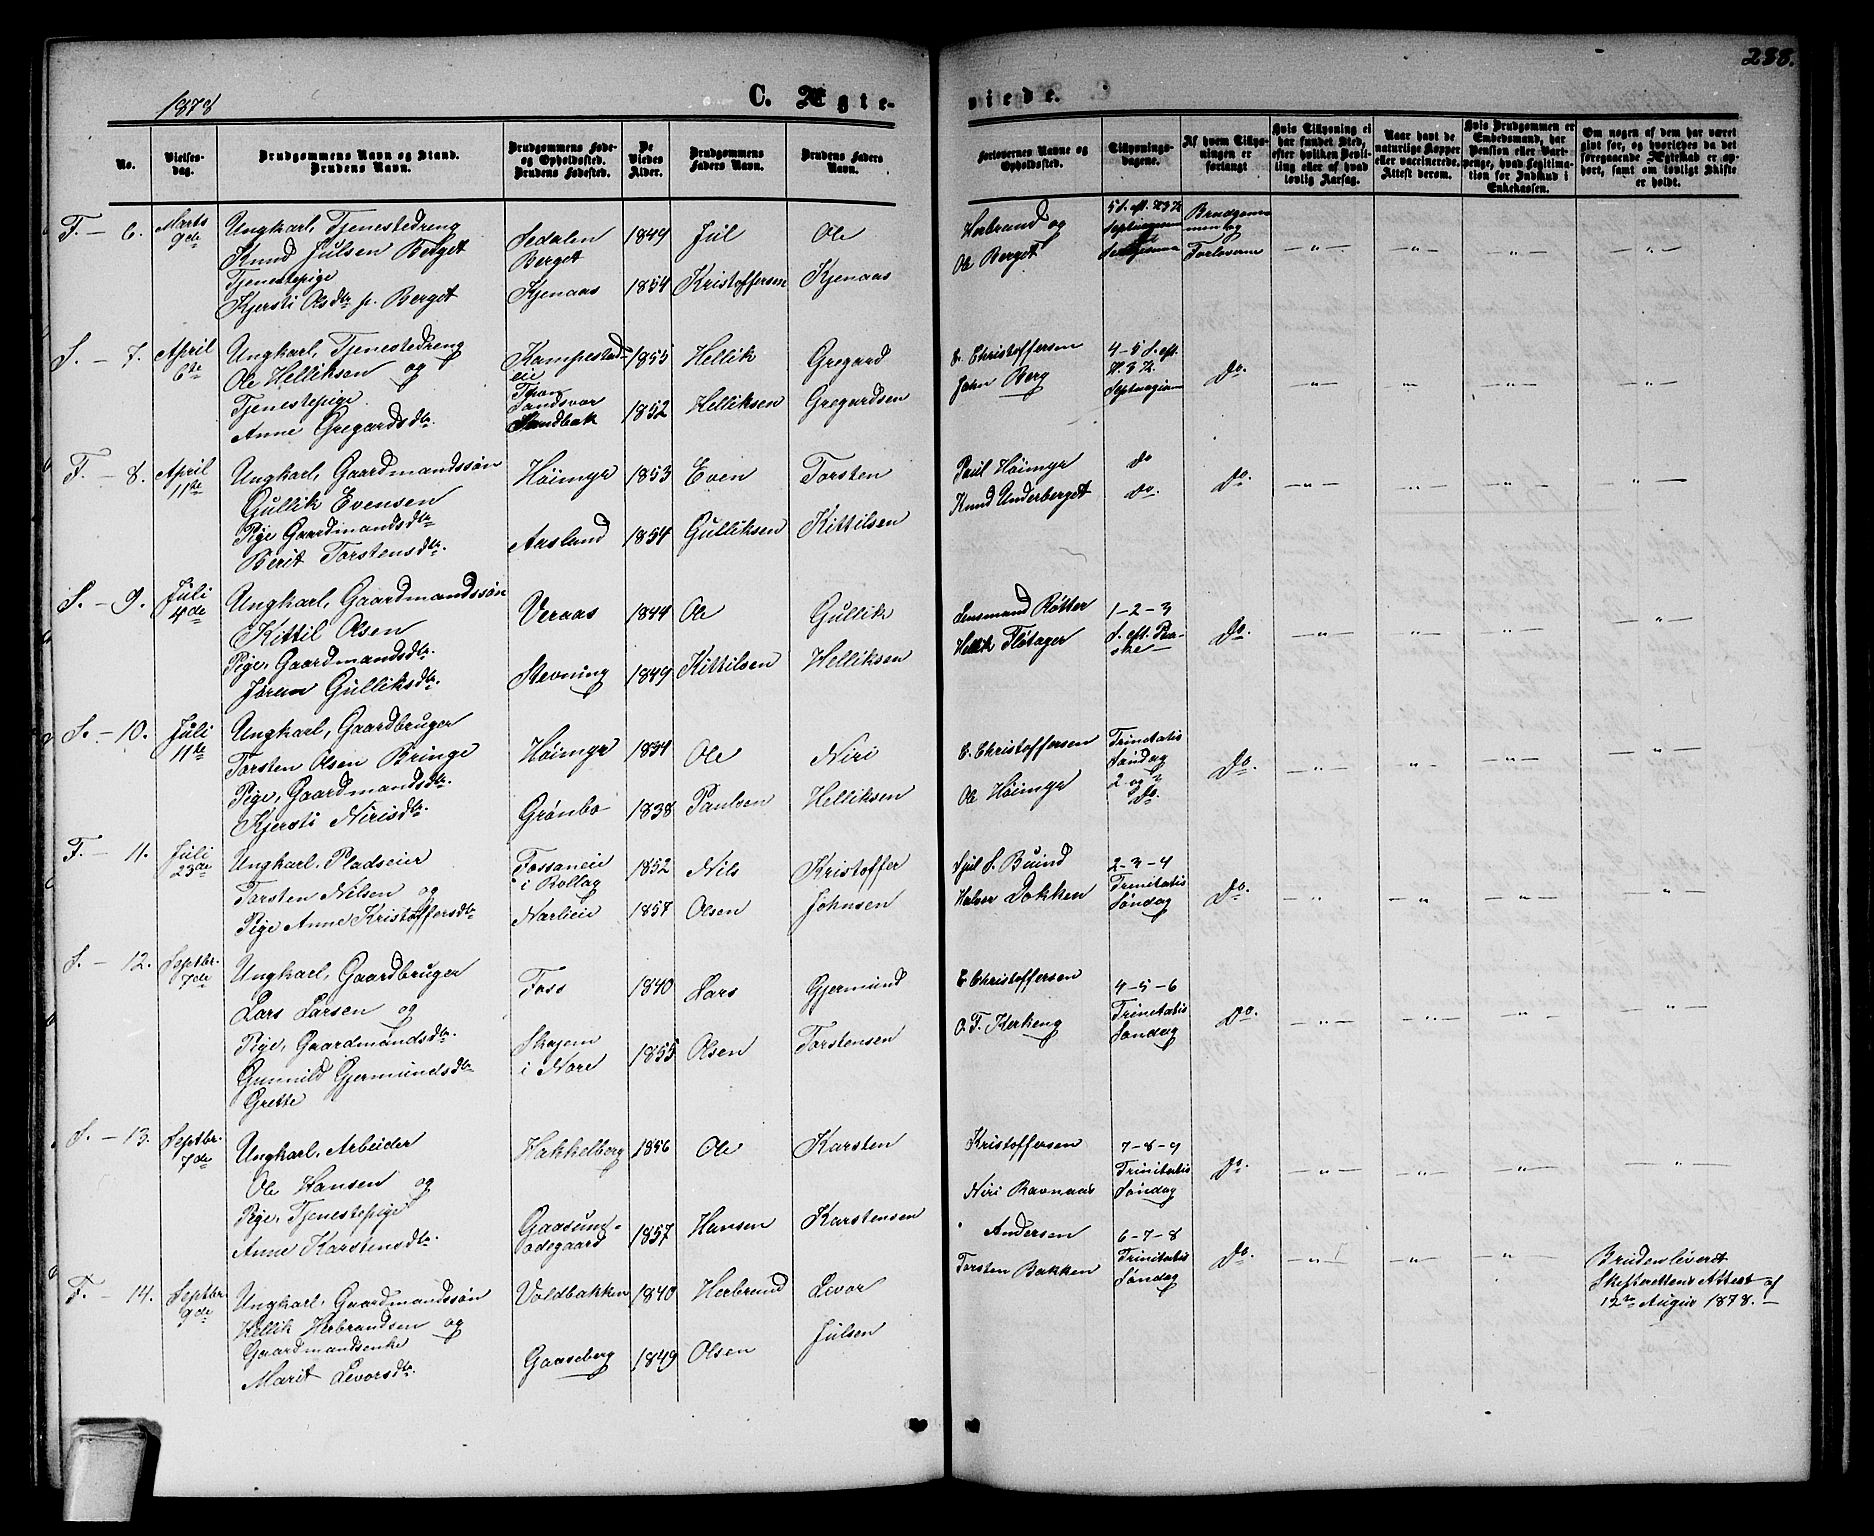 288.
1878
C. Ægte-
viede.
No.
Vielses-
dag.
Brudgommens Navn og Stand.
Brudens Navn.
Brudgommens Føde-
og Opholdssted.
Brudens Fødested.
De
Viedes
Alder.
Brudgommens
Faders Navn.
Brudens Faders
Navn.
Forlovernes Navne og
Opholdssted.
Tillysnings-
dagene.
Af hvem Tillys-
ningen er
forlangt
Hvis Tillysning ei
har fundet Sted,
efter hvilken Bevil-
ling eller af hvad
lovlig Aarsag.
Naar havt de
naturlige Kopper
eller vaccinerede.
Attest derom.
Hvis Brudgommen er
Embedsmand, har
Pension eller Vart-
penge, hvad Legitima-
tion for Indskud i
Enkekassen.
Om nogen af dem har været
gift før, og hvorledes da det
foregaaende Ægteskab er op-
hørt, samt om lovligt Skifte
er holdt.
F. – 6.
Marts
9de
Ungkarl, Tjenestedreng
Knud Julsen Berget
Tjenestepige
Kjersti Olsdtr p. Berget
Sedalen
Berget
Kjenaas
1849
1854
Jul
Kristoffersen
Ole
Kjenaas
Herbrand og
Ole Berget
Brudgom-
men og
Forloverne
S. – 7.
April
6te
Ungkarl, Tjenestedreng
Ole Helliksen og
Tjenestepige
Anne Gregardsdtr.
Kampestad-
eie
Sandsvær
Sandbæk
1855
1852
Hellik
Helliksen
Gregard
Gregardsen
E. Christoffersen
John Berg
4-5 S. eft.
H. 3 K.
Septuagesim
Do.
F. – 8.
April
11te
Ungkarl, Gaardmandssøn
Gullik Evensen
Pige Gaardmandsdtr
Berit Torstensdtr.
Høimyr
Aasland
1853
1854
Even
Gulliksen
Torsten
Kittilsen
Paul Høimyr
Knud Underberget
do
do.
Do.
S. – 9.
Juli
4de
Ungkarl, Gaardmandssøn
Kittil Olsen
Pige, Gaardmandsdtr.
Jøran Gulliksdtr.
Veraas
Stevning
1844
1849
Ole
Kittilsen
Gullik
Helliksen
Lensmand Røtter
Hellik Fløtager
1-2-3
S. eft. Paa-
ske
Do.
S. – 10.
Juli
11te
Ungkarl, Gaardbruger
Torsten Olsen Bringe
Pige, Gaardmandsdtr.
Kjersti Nirisdtr.
Høimyr
Grønbo
1834
1838
Ole
Paulsen
Niri
Helliksen
E. Christoffersen
Ole Høimyr
Trinitatis
Søndag
2 og 3
do.
Do.
F. – 11.
Juli
23de
Ungkarl, Pladseier
Torsten Nilsen og
Pige Anne Kristoffersdtr
Fossaneie
i Rollag
Narlieie
1852
1857
Nils
Olsen
Kristoffer
Johnsen
Jul S. Buind
Halvor Dokken
2-3-4
Trinitatis
Søndag
Do.
S. – 12.
Septbr.
7de
Ungkarl, Gaardbruger
Lars Larsen og
Pige, Gaardmandsdtr.
Gunnild Gjermundsdtr
Grette
Foss
Skajem
i Nore
1840
1855
Lars
Olsen
Gjermund
Torstensen
E. Christoffersen
O. T. Kerkeng
4-5-6
Trinitatis
Søndag
Do.
S. – 13.
Septbr.
7de
Ungkarl, Arbeider
Ole Hansen og
Pige, Tjenestepige
Anne Karstensdtr.
Hakkelberg
Gaasund-
ødegaard
1856
1857
Ole
Hansen
Karsten
Karstensen
Kristoffersen
Niri Ravnaas
7-8-9
Trinitatis
Søndag
Do.
F. – 14.
Septbr
9de
Ungkarl, Gaardmandssøn
Hellik Herbrandsen og
Gaardmandsenke
Marit Levorsdtr.
Voldbakken
Gaaseberg
1840
1849
Herbrand
Olsen
Levor
Julsen
Andersen
Torsten Bakken
6-7-8
Trinitatis
Søndag
Do.
Bruden leveret
Skifterettens Attest af
12te August 1878. –